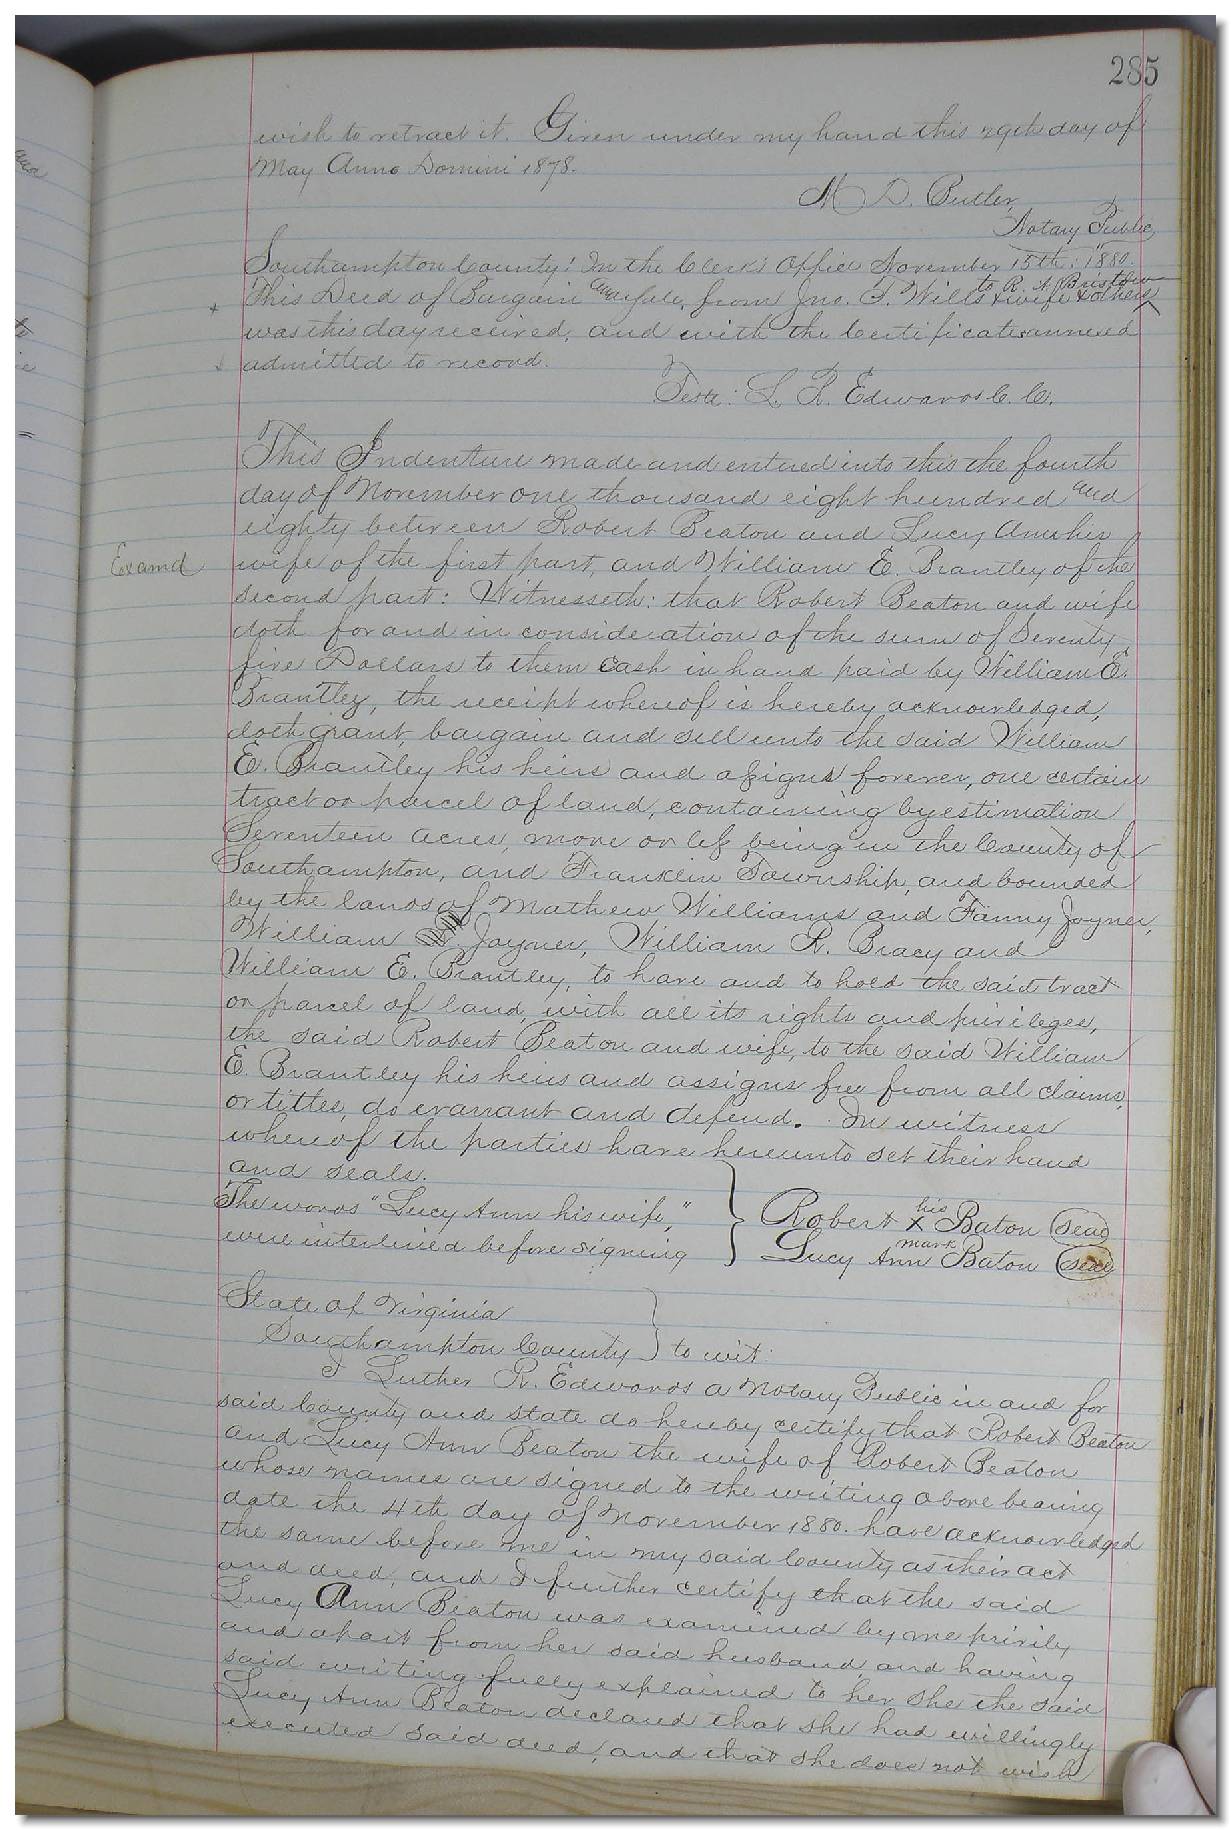 285
wish to retract it. Given under my hand this 29th day of
May Anno Domini 1878.
M D. Butler,
Notary Public
Southampton County: In the Clerk's Office November 15th: 1880.
This Deed of Bargain and sale, from Jno. T. Wills & wife & others to R. A. Bristow
was this day received, and with the Certificates annexed
admitted to record.
Teste: L. R. Edwards C. C.
This Indenture made and entered into this the fourth
day of November one thousand eight hundred and
eighty between Robert Beaton and Lucy Ann his
Examd
wife of the first part, and William E. Brantley of the
second part: Witnesseth: that Robert Beaton and wife
doth for and in consideration of the sum of Seventy
five Dollars to them cash in hand paid by William E.
Brantley, the receipt whereof is hereby acknowledged,
doth grant, bargain and sell unto the said William
E. Brantley his heirs and assigns forever, one certain
tract or parcel of land, containing by estimation
Seventeen acres, more or less being in the County of
Southampton, and Franklin Township, and bounded
by the lands of Mathew Williams and Fanny Joyner,
William Joyner, William R. Bracy and
William E. Brantley, to have and to hold the said tract
or parcel of land, with all its rights and privileges,
the said Robert Beaton and wife, to the said William
E. Brantley his heirs and assigns free from all claims,
or titles, do warrant and defend. In witness
whereof the parties have hereunto set their hand
and seals.
The words "Lucy Ann his wife,"
were interlined before signing
Robert his x mark Baton Seal
Lucy Ann Baton Seal
State of Virginia
Southampton County } to wit:
I Luther R. Edwards a Notary Public in and for
said County and State do hereby certify that Robert Beaton
and Lucy Ann Beaton the wife of Robert Beaton
whose names are signed to the writing above bearing
date the 4th day of November 1880. have acknowledged
the same before me in my said County as their act
and deed, and I further certify that the said
Lucy Ann Beaton was examined by me privily
and apart from her said husband, and having
said writing fully explained to her she the said
Lucy Ann Beaton declared that she had willingly
executed said deed, and that she does not wish